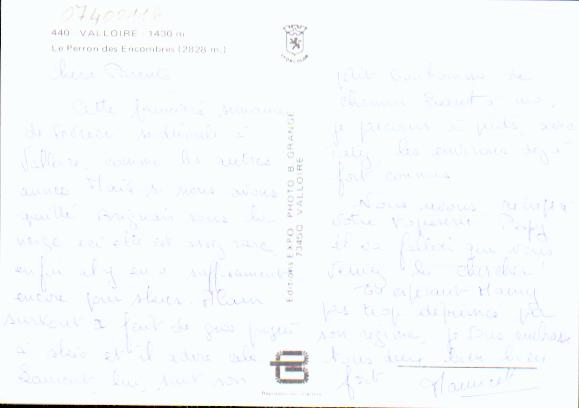 07400118
440 VALLOIRE : 1430 m
Le Perron des Encombres (2828 m.)
Chers Parents
Cette première semaine
de février se déroule à
Valloire comme les autres
années Mais si nous avons
quitté Brignais sous la
neige ici elle est assez rare
enfin il y en a suffisamment
encore pour skier. Alain
surtout a fait de gros progrès
à skis et il adore cela
Laurent lui suit son
petit bonhomme de
chemin Quant à moi
je parcours à pieds avec
les environs déjà
fort connus
Nous avons
votre tapisserie Papy
il va falloir que vous
veniez la chercher
En espérant Mamy
pas trop déprimée par
son régime, je vous embrasse
tous deux bien bien
fort
Editions EXPO PHOTO B. GRANGE
73450 VALLOIRE